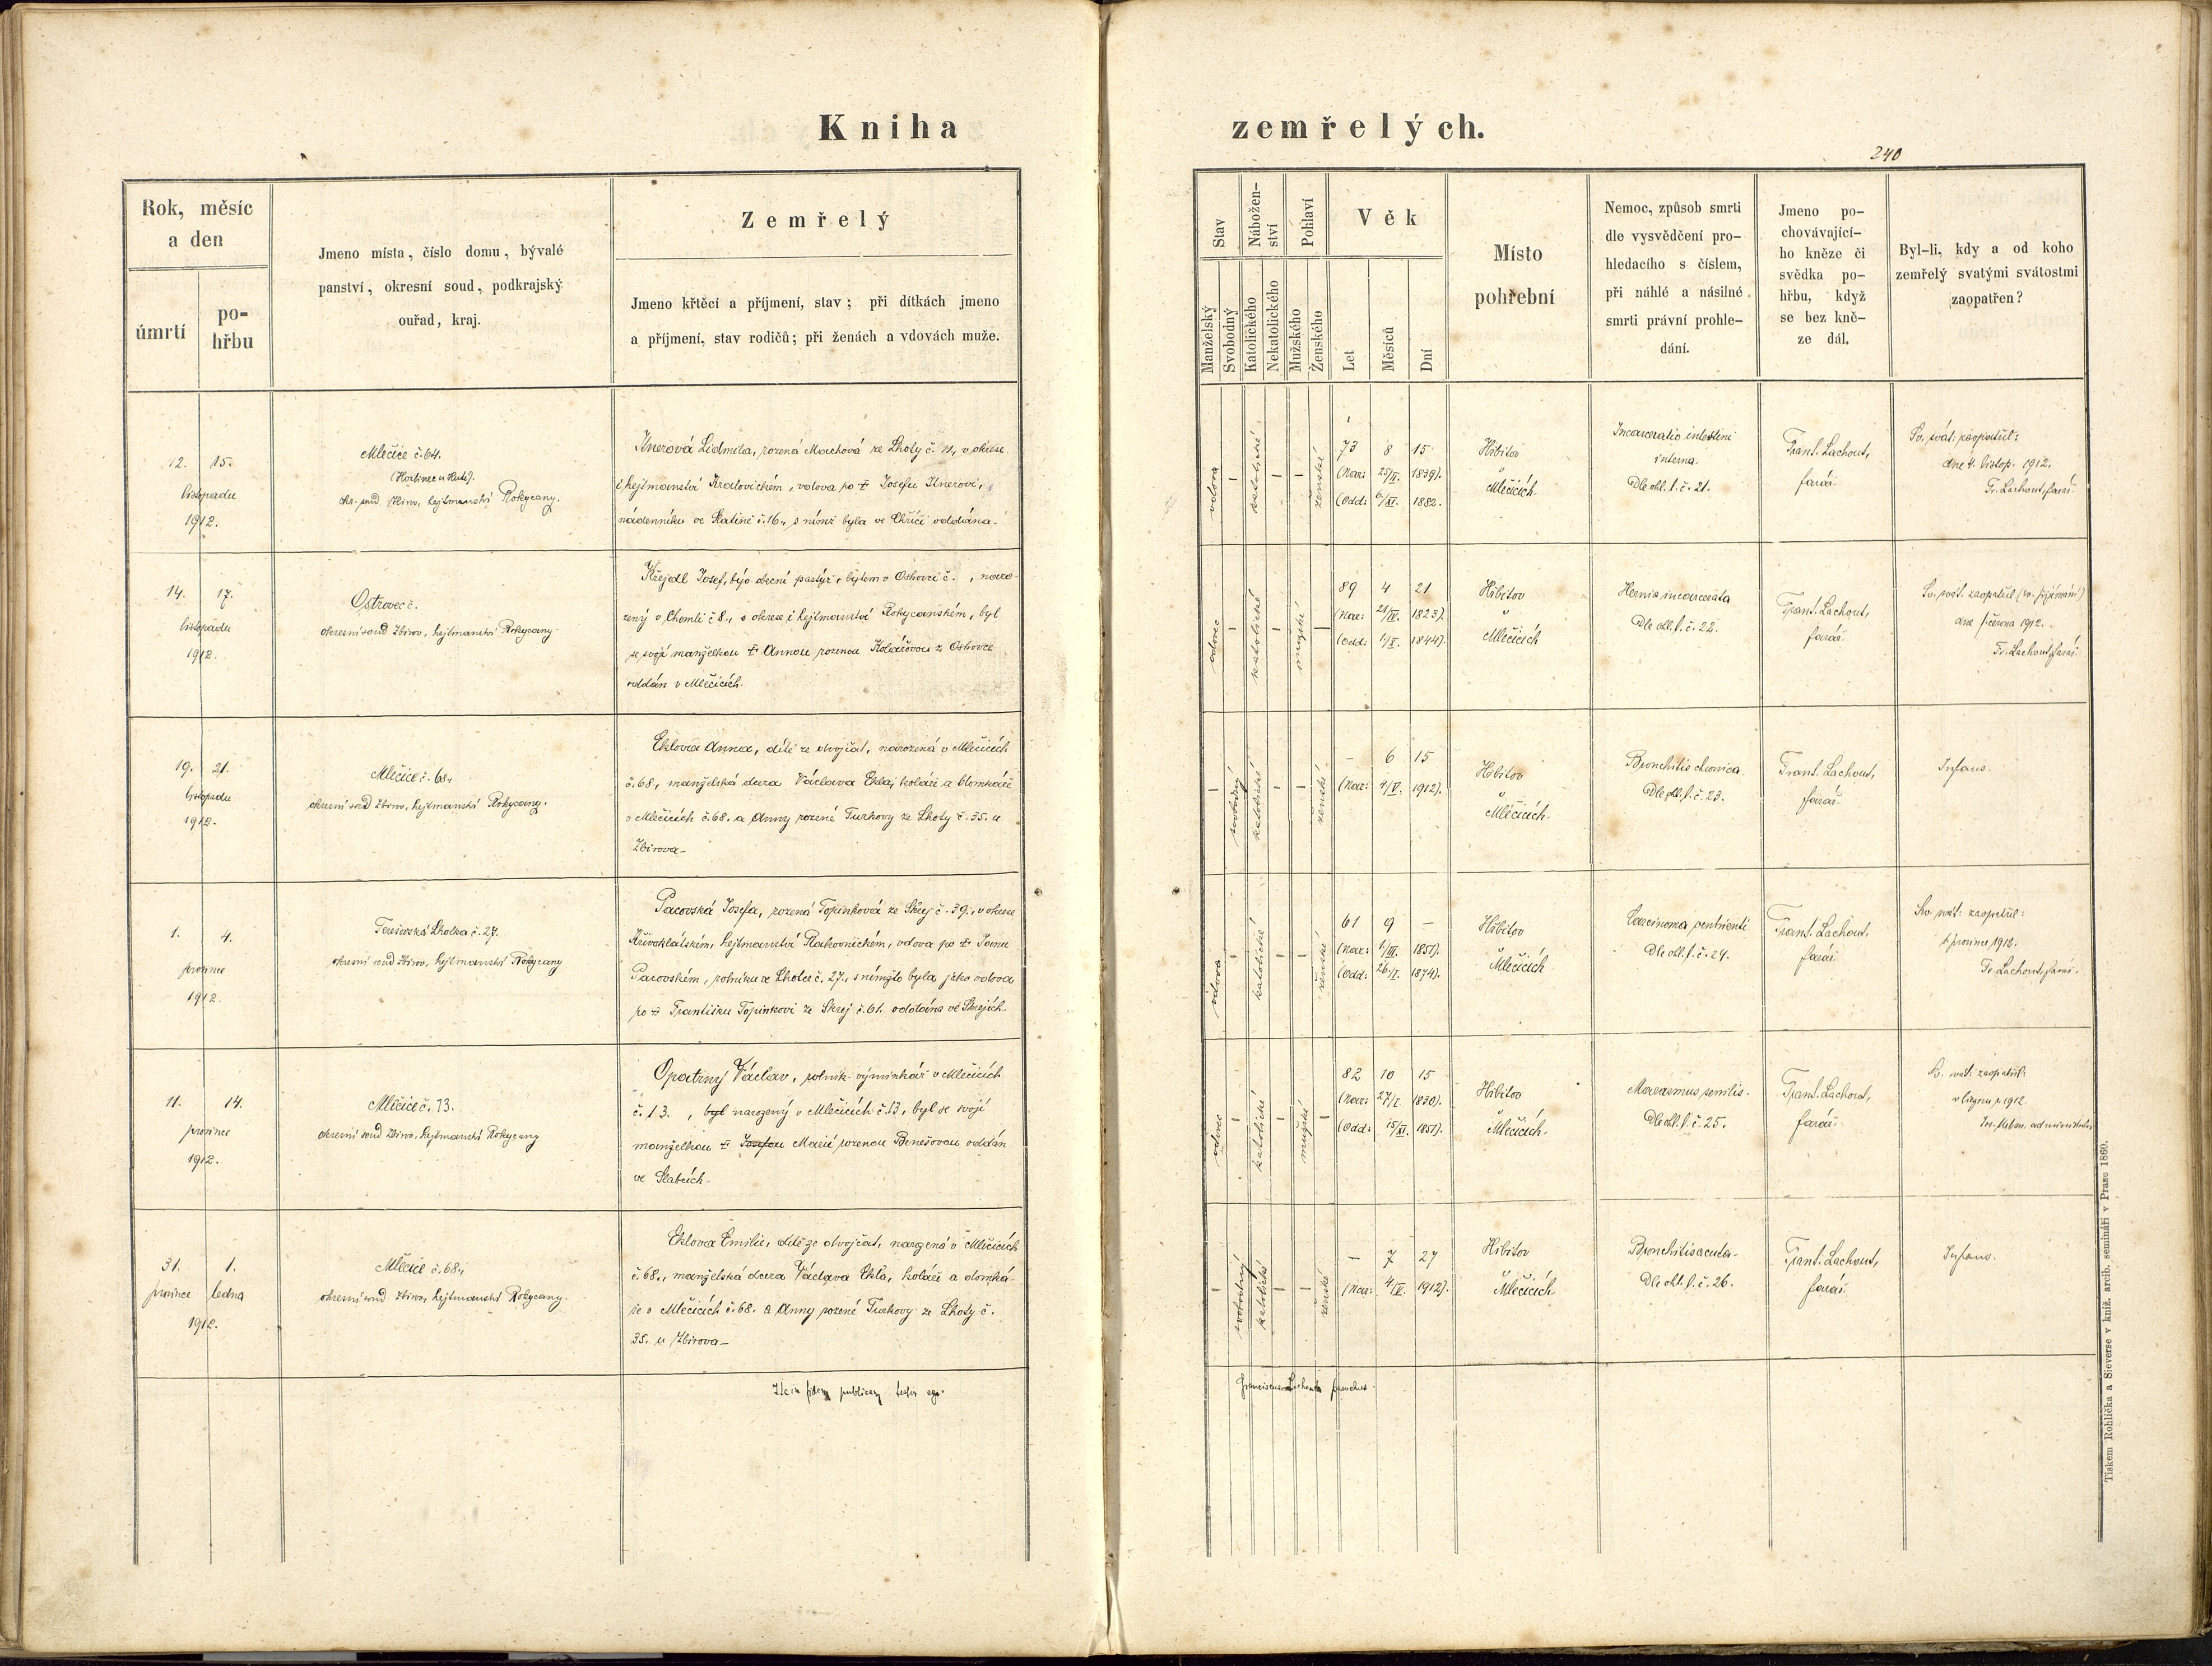 Kniha
zemřelých.
240
Rok, měsíc
a den
úmrtí
po-
hřbu
Jmeno místa, číslo domu, bývalé
panství, okresní soud, podkrajský
ouřad, kraj.
Zemřelý
Jmeno křtěcí a příjmení, stav; při dítkách jmeno
a příjmení, stav rodičů; při ženách a vdovách muže.
Stav
Manželský
Svobodný
Nábožen-
ství
Katolického
Nekatolického
Pohlaví
Mužského
Ženského
Věk
Let
Měsíců
Dní
Místo
pohřební
Nemoc, způsob smrti
dle vysvědčení pro-
hledacího s číslem,
při náhlé a násilné
smrti právní prohle-
dání.
Jmeno po-
chovávající-
ho kněze či
svědka po-
hřbu, když
se bez kně-
ze dál.
Byl-li, kdy a od koho
zemřelý svatými svátostmi
zaopatřen?
12. 15.
listopadu
1912.
Mlečice č. 64.
okr. soud Zbirov, hejtmanství Rokycany.
Ilnerová Lidmila, rozená Machová ze Lhoty č. 11, v okrese
i hejtmanství Kralovickém, vdova po † Josefu Ilnerovi,
nádenníku ve č. 16., s nímž byla ve Chříči oddána.
vdova
katolické
ženské
73 8 15
(Nar: 25/IV. 1839).
(Odd: 6/XI. 1882.
Hřbitov
v
Mlečicích
Incarceratio intestini
interna.
Dle ohl. l. č. 21.
Frant. Lachout,
farář.
Sv. svát. zaopatřil:
dne 4. listop. 1912.
Fr. Lachout, farář.
14. 17.
listopadu
1912.
Ostrovec č.
okresní soud Zbirov, hejtmanství Rokycany
Křejdl Josef, býv. obecní pastýř, bytem v Ostrovci č. , naro-
zený v Chomli č 8., v okrese i hejtmanství Rokycanském, byl
se svojí manželkou † Annou rozenou Kolářovou z Ostrovce
oddán v Mlečicích.
vdovec
katolické
mužské
89 4 21
(Nar: 1823).
(Odd: 1844).
Hřbitov
v
Mlečicích
Hernia incarcerata
Dle ohl. l. č. 22.
Frant. Lachout,
farář.
Sv. svát. zaopatřil
dne června 1912.
Fr. Lachout, farář.
19. 21.
listopadu
1912.
Mlečice č. 68.
okresní soud Zbirov, hejtmanství Rokycany.
Eklova Anna, dítě ze dvojčat, narozená v Mlečicích
č. 68., manželská dcera Václava Ekla, koláře a domkáře
v Mlečicích č. 68. a Anny rozené Turkovy ze Lhoty č. 35. u
Zbirova
svobodný
katolické
ženské
– 6 15
(Nar: 4/V. 1912).
Hřbitov
v
Mlečicích.
Bronchitis chronica
Dle ohl. l. č. 23.
Frant. Lachout,
farář.
Infans.
1. 4.
prosince
1912.
Terešovská Lhotka č. 27.
okresní soud Zbirov, hejtmanství Rokycany
Pacovská Josefa, rozená Topinková ze Skrej č. 39., v okrese
Křivoklátském, hejtmanství Rakovnickém, vdova po † Janu
Pacovském, rolníku ze Lhotce č. 27., s nímžto byla jako vdova
po † Františku Topinkovi ze Skrej č. 61. oddána ve Skrejích.
vdova
katolické
ženské
61 9 –
(Nar: 1/III. 1851).
(Odd: 1874).
Hřbitov
v
Mlečicích
Carcinoma
Dle ohl. l. č. 24.
Frant. Lachout,
farář.
Sv. svát. zaopatřil:
prosince 1912.
Fr. Lachout, farář.
11. 14.
prosince
1912.
Mlečice č. 13.
okresní soud Zbirov, hejtmanství Rokycany
Opatrný Václav, rolník-výminkář v Mlečicích
č. 13. , byl narozený v Mlečicích č. 13, byl se svojí
manželkou † Josefou Marií rozenou Benešovou oddán
ve Slabcích.
vdovec
katolické
mužské
82 10 15
(Nar: 27/I. 1830).
(Odd: 15/XI. 1851).
Hřbitov
v
Mlečicích.
Marasmus senilis.
Dle ohl. l. č. 25.
Frant. Lachout,
farář.
Sv. svát. zaopatřil:
v srpnu r. 1912
31. 1.
prosince ledna
1912.
Mlečice č. 68.
okresní soud Zbirov, hejtmanství Rokycany.
Eklova Emilie, dítě ze dvojčat, narozená v Mlečicích
č. 68., manželská dcera Václava Ekla, koláře a domká-
ře v Mlečicích č. 68. a Anny rozené Turkovy ze Lhoty č.
35. u Zbirova
svobodný
katolické
ženské
– 7 27
(Nar: 1912).
Hřbitov
v
Mlečicích
Bronchitis acuta.
Dle ohl. l. č. 26.
Frant. Lachout,
farář.
Infans.
fidem publicam testor ego
Franciscus Lachout parochus.
Tiskem Rohlíčka a Sieverse v kníž. arcib. semináři v Praze 1860.